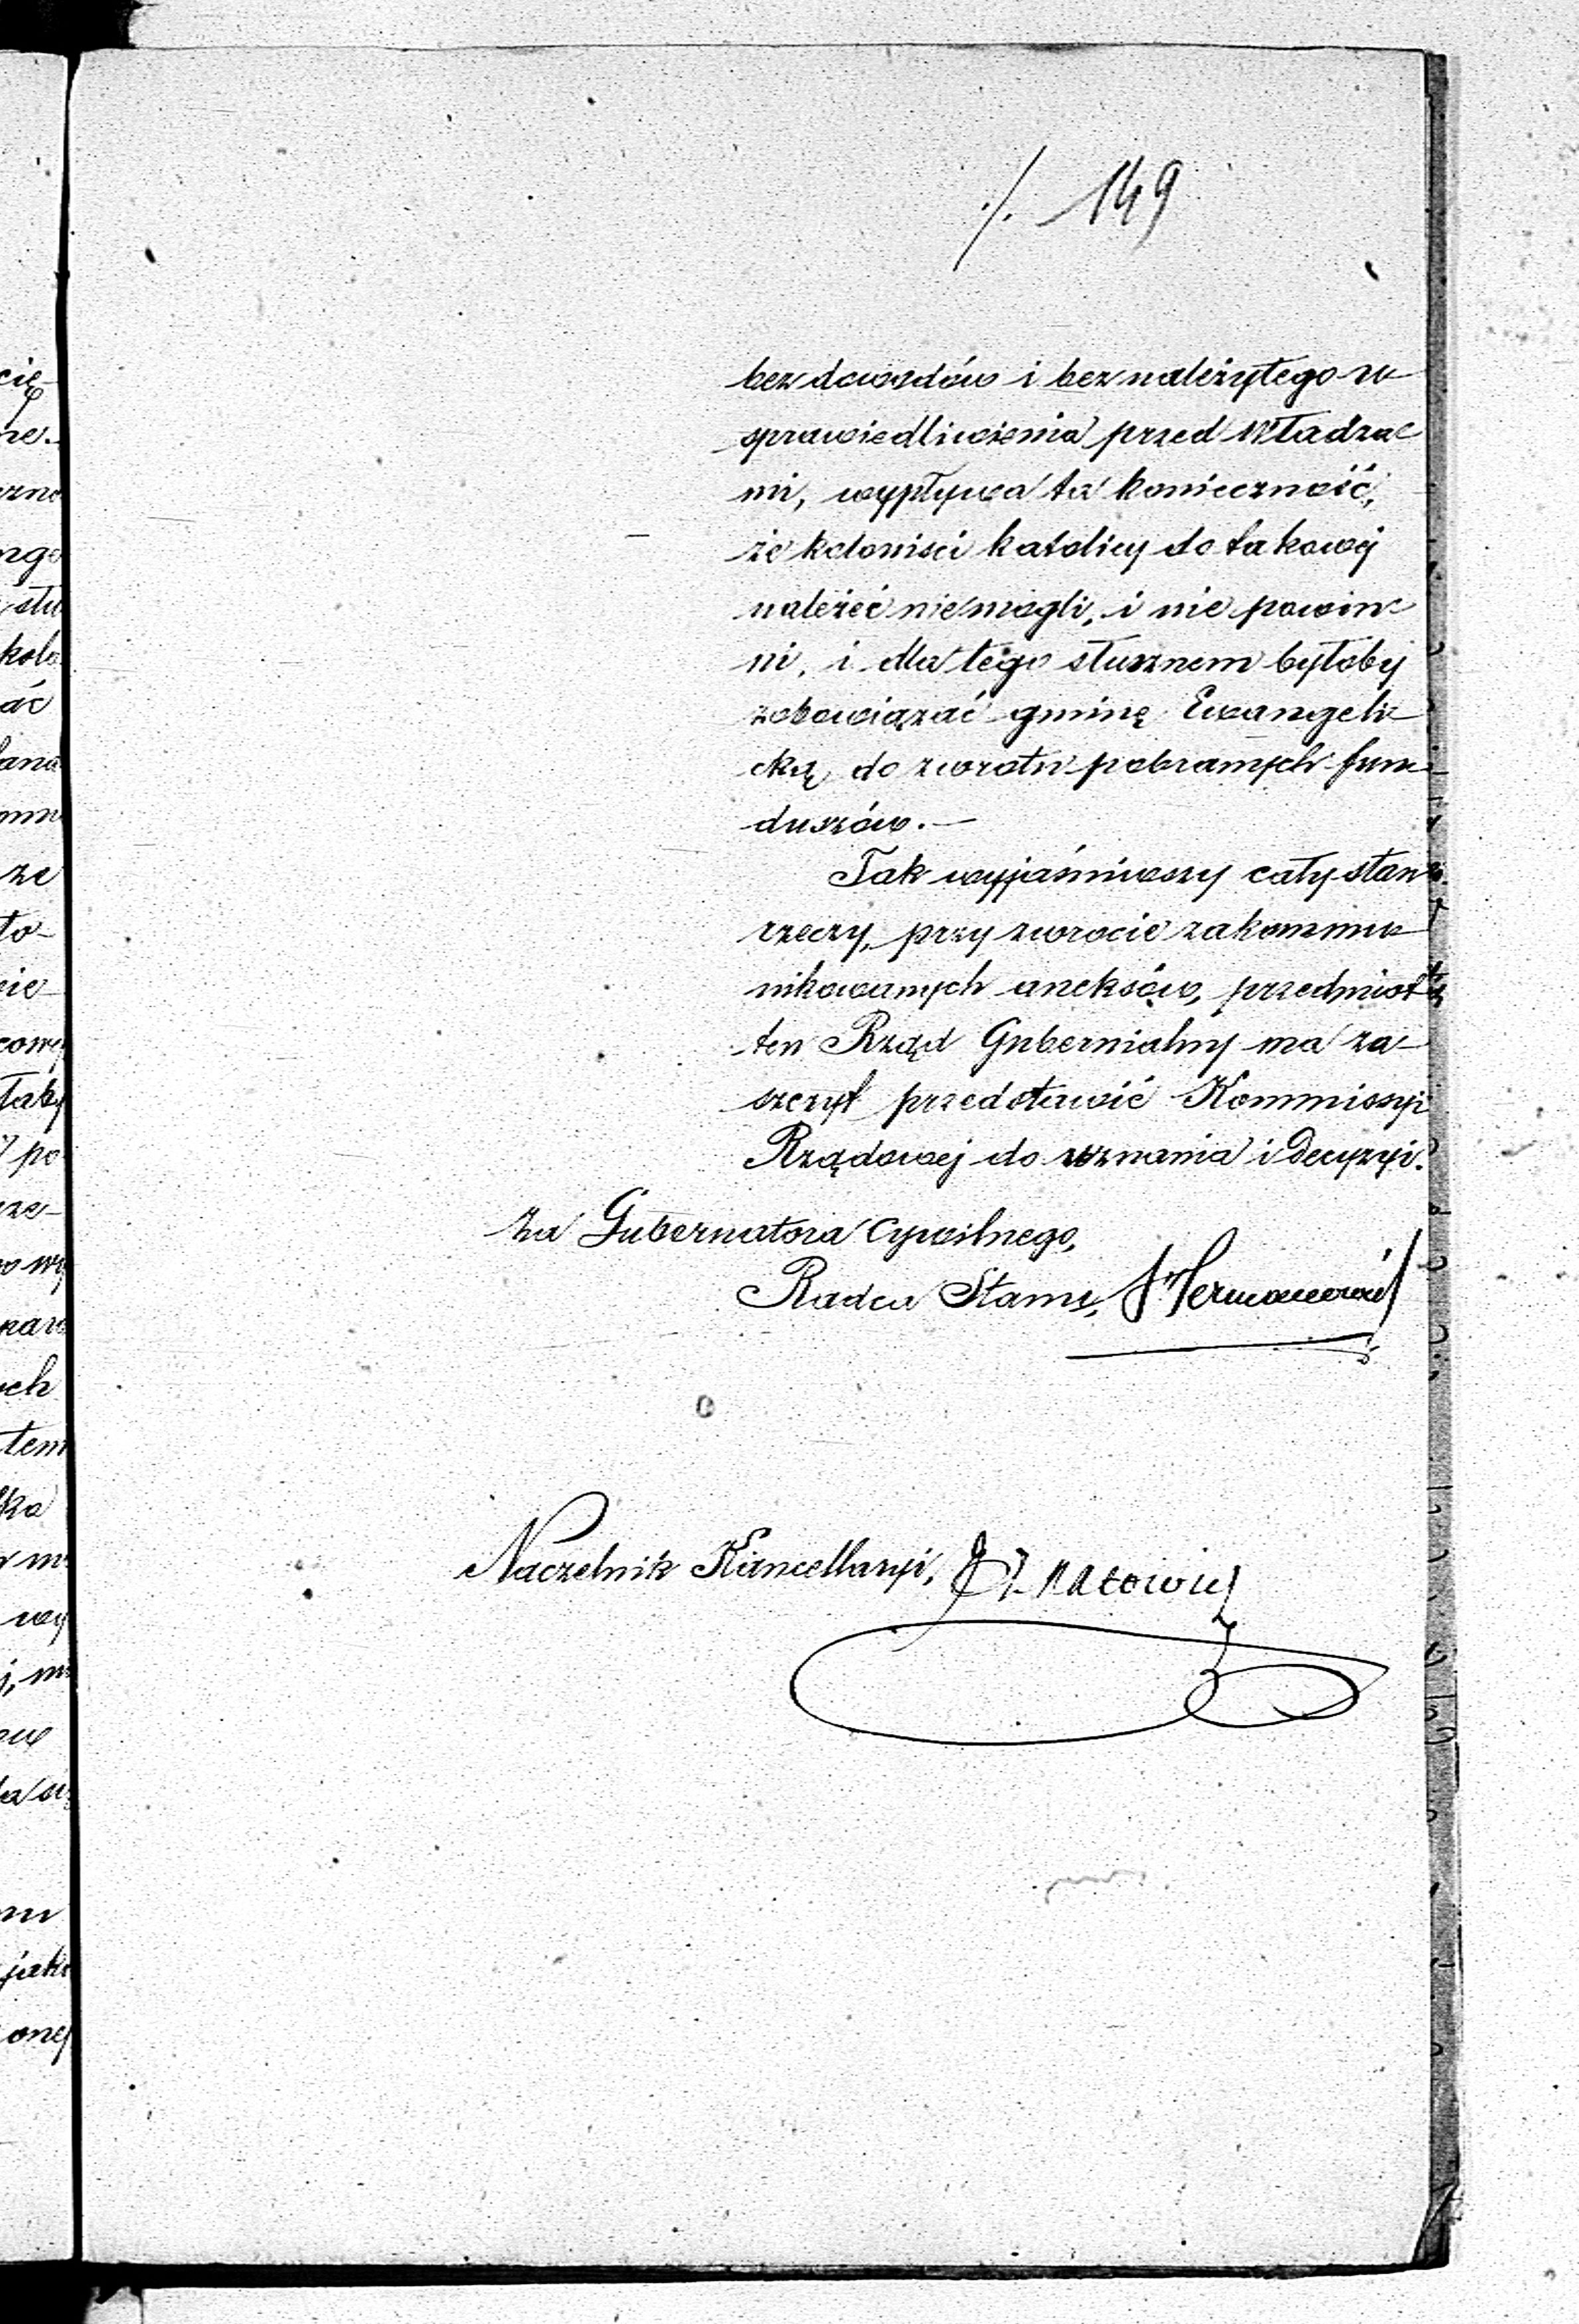 ./. 149
bez dowodów i bez należytego u-
sprawiedliwienia przed Władza-
mi, wypływa ta konieczność,
że koloniści katolicy do takowej
należeć nie mogli, i nie powin-
ni, i dla tego słusznem byłoby
zobowiązać gminę Ewangeli-
cką do zwrotu pobranych fun-
duszów.—
Tak wyjaśniwszy cały stan
rzeczy, przy zwrocie zakommu-
nikowanych aneksów, przedmiot
ten Rząd Gubernialny ma za-
szczyt przedstawić Kommissyi
Rządowej do uznania i Decyzyi.
Za Gubernatora Cywilnego,
Radca Stanu,
Naczelnik Kancellaryi,